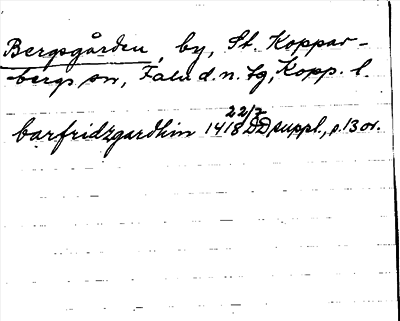 Bergsgården, by, St. Koppar-
bergs sn, Falu d.n. tg, Kopp. l.
barfridzgardhin 1418 22/7 DD suppl., s. 13 or.